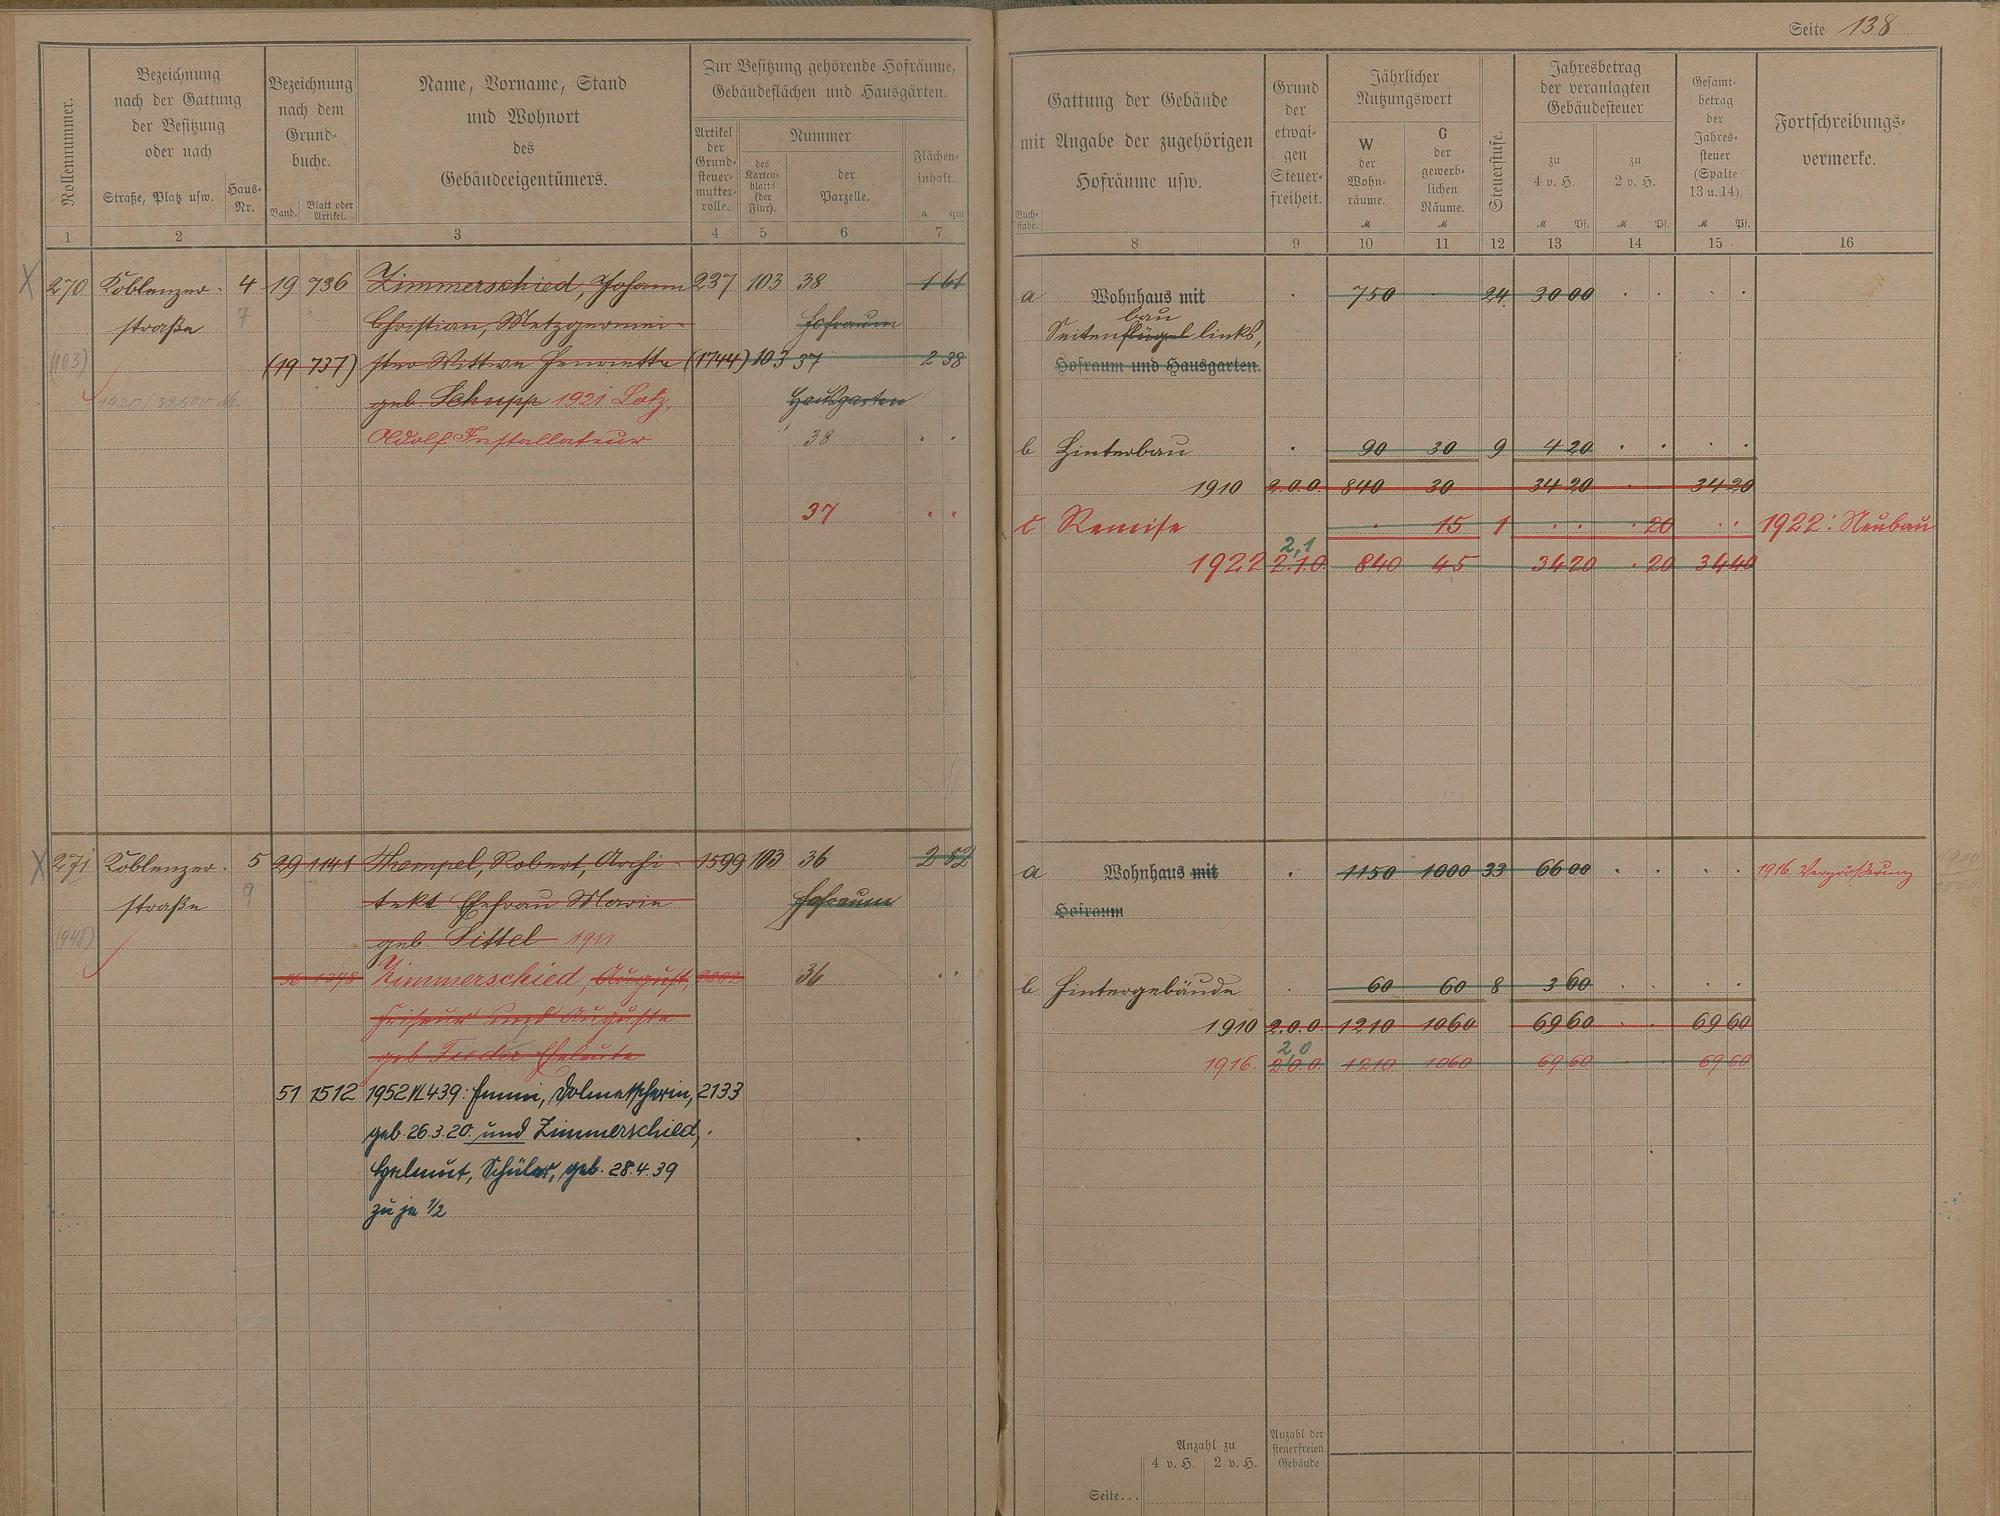 Seite 138
Rollennummer.
Bezeichnung
nach der Gattung
der Besitzung
oder nach
Straße, Platz usw.
Haus-
Nr.
Bezeichnung
nach dem
Grund-
buche.
Band.
Blatt oder
Artikel.
Name, Vorname, Stand
und Wohnort
des
Gebäudeeigentümers.
Zur Besitzung gehörende Hofräume,
Gebäudeflächen und Hausgärten.
Artikel
der
Grund-
steuer-
mutter-
rolle.
Nummer
des
Karten-
blatts
(der
Flur).
der
Parzelle.
Flächen-
inhalt.
a qm
1 2 3 4 5 6 7
270 Koblenzer- 4 19 736 Zimmerschied, Johann 237 103 38 1 61
straße 7 Christian, Metzgermei- Hofraum
(103) (19 737) ster Wittwe Henriette (1744) 103 37 2 38
1920/ geb. Schupp 1921 Lotz, Hausgarten
Adolf Installateur 38 . .
37 . .
271 Koblenzer- 5 29 1141 Thempel, Robert, Archi- 1599 103 36 2 82
straße 9 tekt Ehefrau Marie Hofraum
(948) geb. Sittel 1911
Zimmerschied, August, 36 . .
Friseur und Auguste
geb. Eheleute
51 1512 1952 VL439: Emmi, Dolmetscherin, 2133
geb. 26.3.20. und Zimmerschied,
Helmut, Schüler, geb. 28.4.39
zu je 1/2
Gattung der Gebäude
mit Angabe der zugehörigen
Hofräume usw.
Buch-
stabe.
Grund
der
etwai-
gen
Steuer-
freiheit.
Jährlicher
Nutzungswert
W
der
Wohn-
räume.
M
G
der
gewerb-
lichen
Räume.
M
Steuerstufe.
Jahresbetrag
der veranlagten
Gebäudesteuer
zu
4 v. H.
M Pf.
zu
2 v. H.
M Pf.
Gesamt-
betrag
der
Jahres-
steuer
(Spalte
13 u. 14).
M Pf.
Fortschreibungs-
vermerke.
8 9 10 11 12 13 14 15 16
a Wohnhaus mit . 750 . 24 30 00 . . . .
bau
Seitenflügel links,
Hofraum und Hausgarten.
b Hinterbau . 90 30 9 4 20 . . . .
1910 2.0.0. 840 30 34 20 . . 34 20
c Remise . 15 1 . . . 20 . . 1922: Neubau
2,1
1922 2.1.0. 840 45 34 20 . 20 34 40
a Wohnhaus mit . 1150 1000 33 66 00 . . . . 1916 Vergrößerung
Hofraum
b Hintergebäude . 60 60 8 3 60 . . . .
1910 2.0.0. 1210 1060 69 60 . . 69 60
2,0
1916. 2.0.0. 1210 1060 69 60 69 60
Anzahl zu
4 v. H. 2 v. H.
Anzahl der
steuerfreien
Gebäude
Seite...